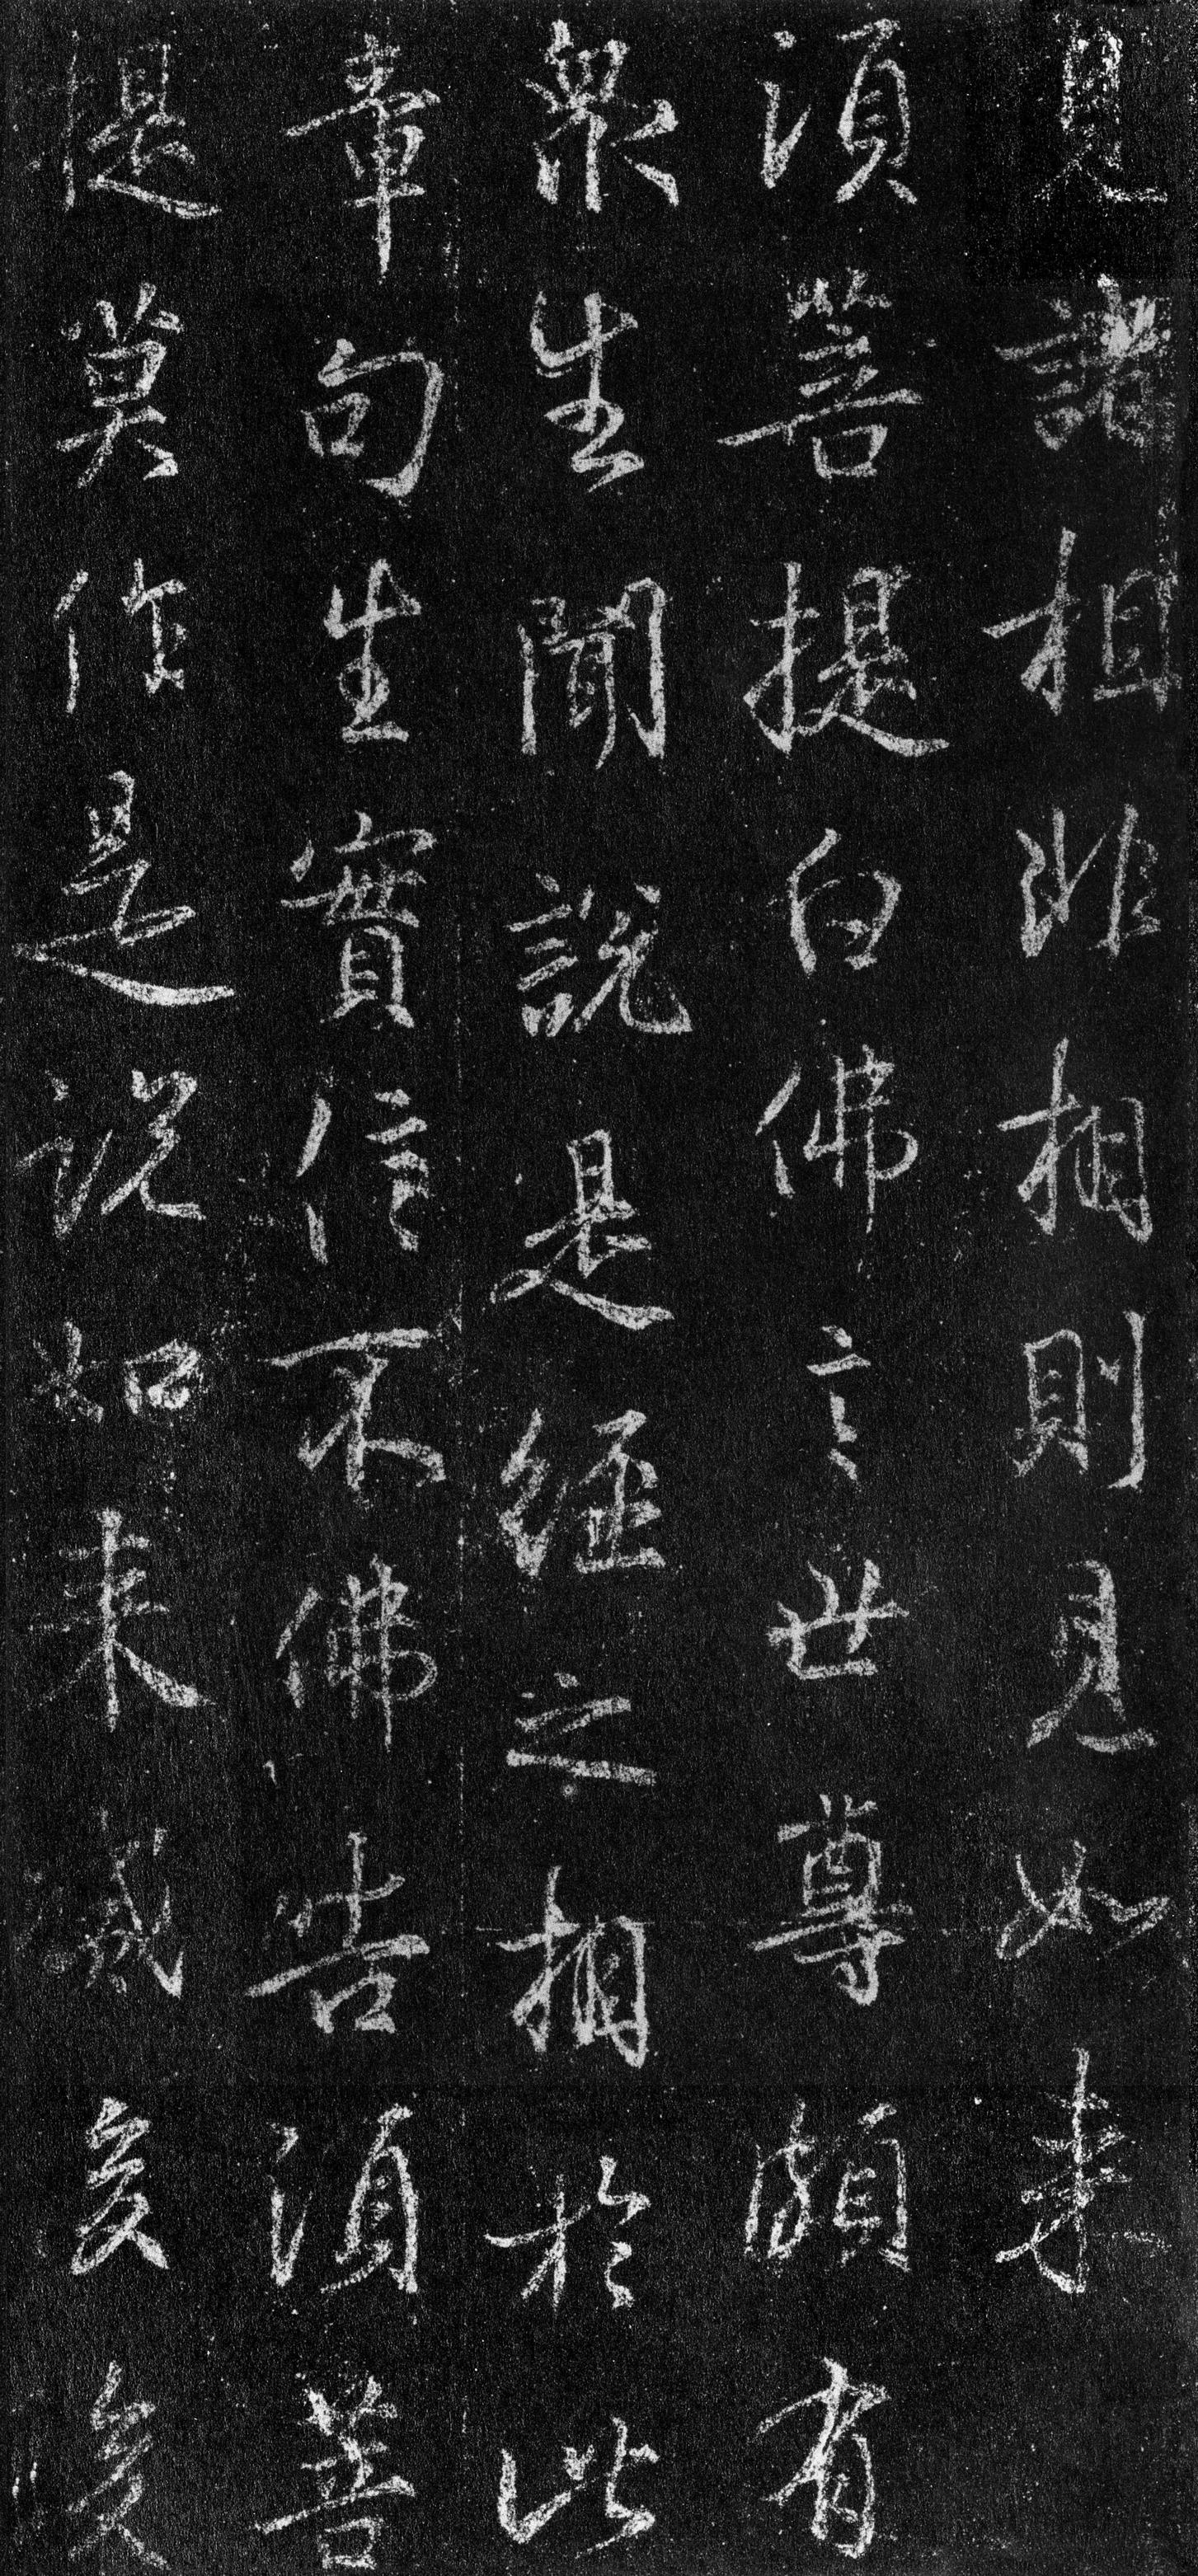 見諸相非相則見如来
須菩提白佛言世尊頗有
衆生聞說是經之相於此
章句生實信不佛告須菩
提莫作是說如来滅後後